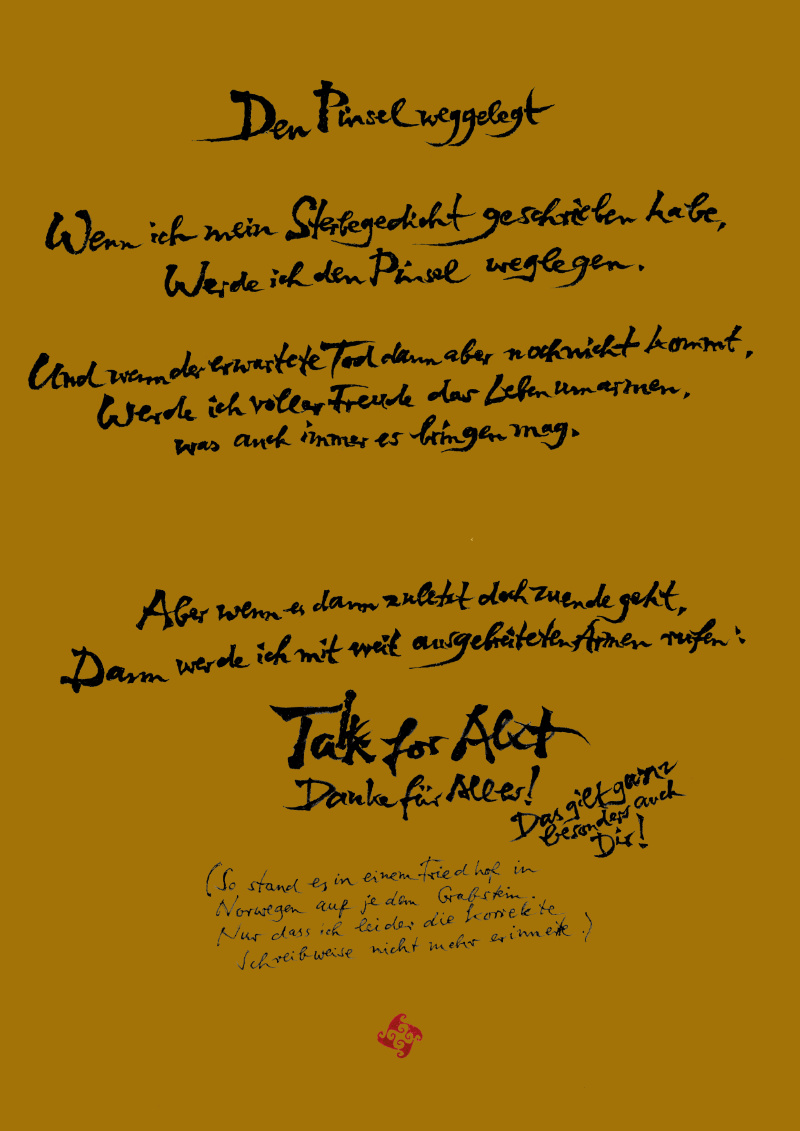 Den Pinsel weggelegt
Wenn ich mein Sterbegedicht geschrieben habe,
Werde ich den Pinsel weglegen.
Und wenn der erwartete Tod dann aber noch nicht kommt,
Werde ich voller Freude das Leben umarmen,
was auch immer es bringen mag.
Aber wenn es dann zuletzt doch zuende geht,
Dann werde ich mit weit ausgebreiteten Armen rufen:
Takk for Alct
Danke für Alles!
Das gilt ganz
besonders auch
Dir!
(So stand es in einem Friedhof in
Norwegen auf jedem Grabstein.
Nur dass ich leider die korrekte
Schreibweise nicht mehr erinnerte.)